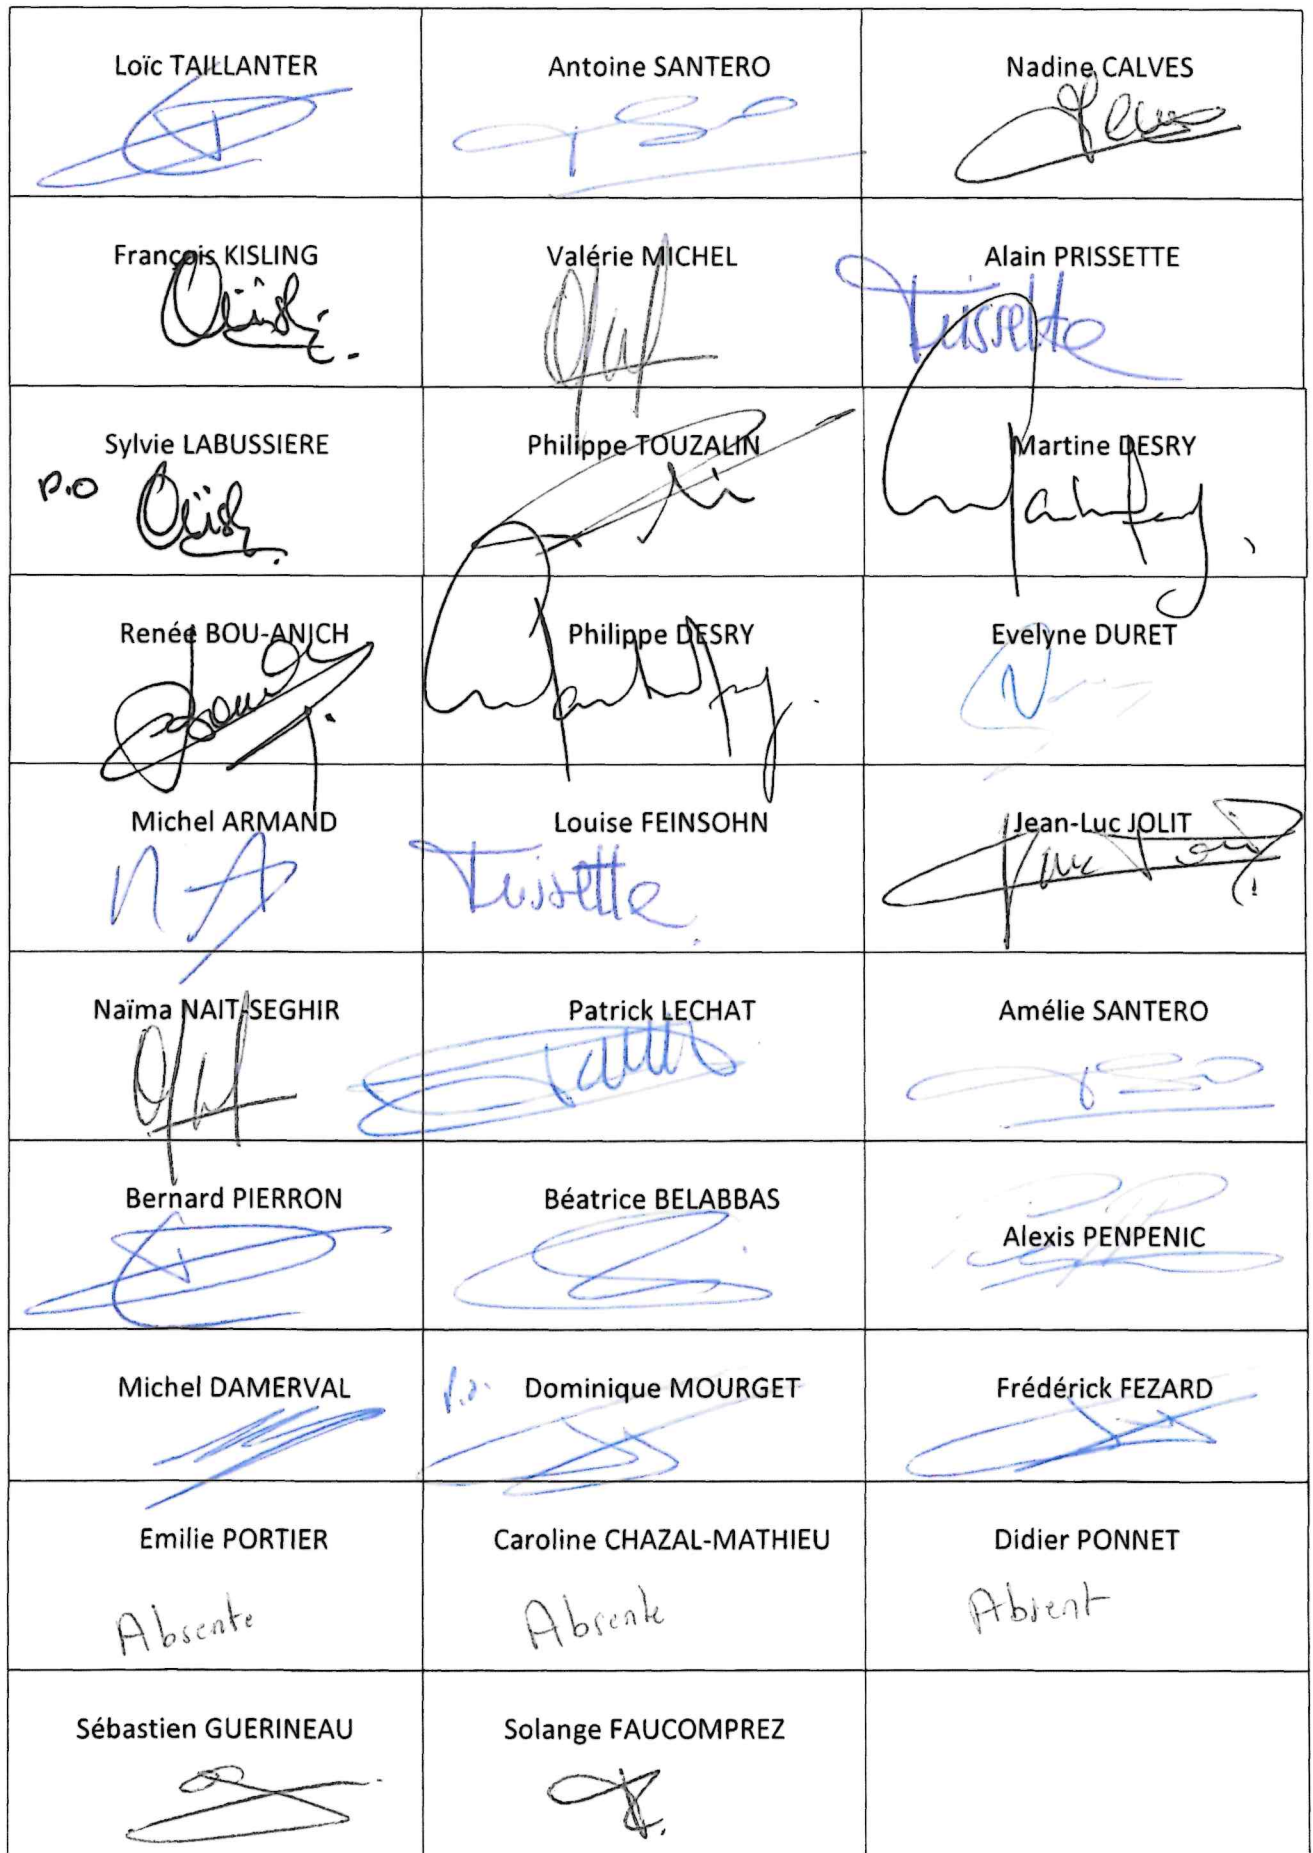 Loïc TAILLANTER
Antoine SANTERO
Nadine CALVES
François KISLING
Valérie MICHEL
Alain PRISSETTE
Prissette
Sylvie LABUSSIERE
P.O
Philippe TOUZALIN
Martine DESRY
Renée BOU-ANICH
Philippe DESRY
Evelyne DURET
Michel ARMAND
MA
Louise FEINSOHN
Prissette
Jean-Luc JOLIT
Naïma NAIT-SEGHIR
Patrick LECHAT
Amélie SANTERO
Bernard PIERRON
Béatrice BELABBAS
Alexis PENPENIC
Michel DAMERVAL
P.O. Dominique MOURGET
Frédérick FEZARD
Emilie PORTIER
Absente
Caroline CHAZAL-MATHIEU
Absente
Didier PONNET
Absent
Sébastien GUERINEAU
Solange FAUCOMPREZ